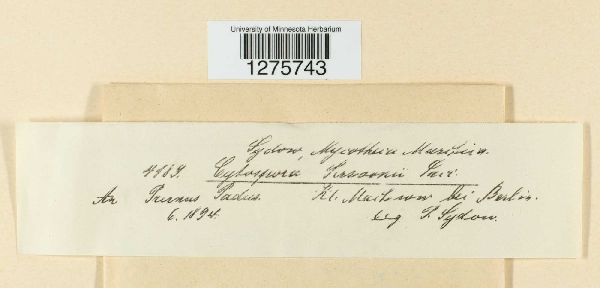 University of Minnesota Herbarium
1275743
Sydow, Mycotheca Marchica.
Cytospora
An Prunus Padus. Kl. Machnow bei Berlin.
6. 1894. leg P. Sydow.